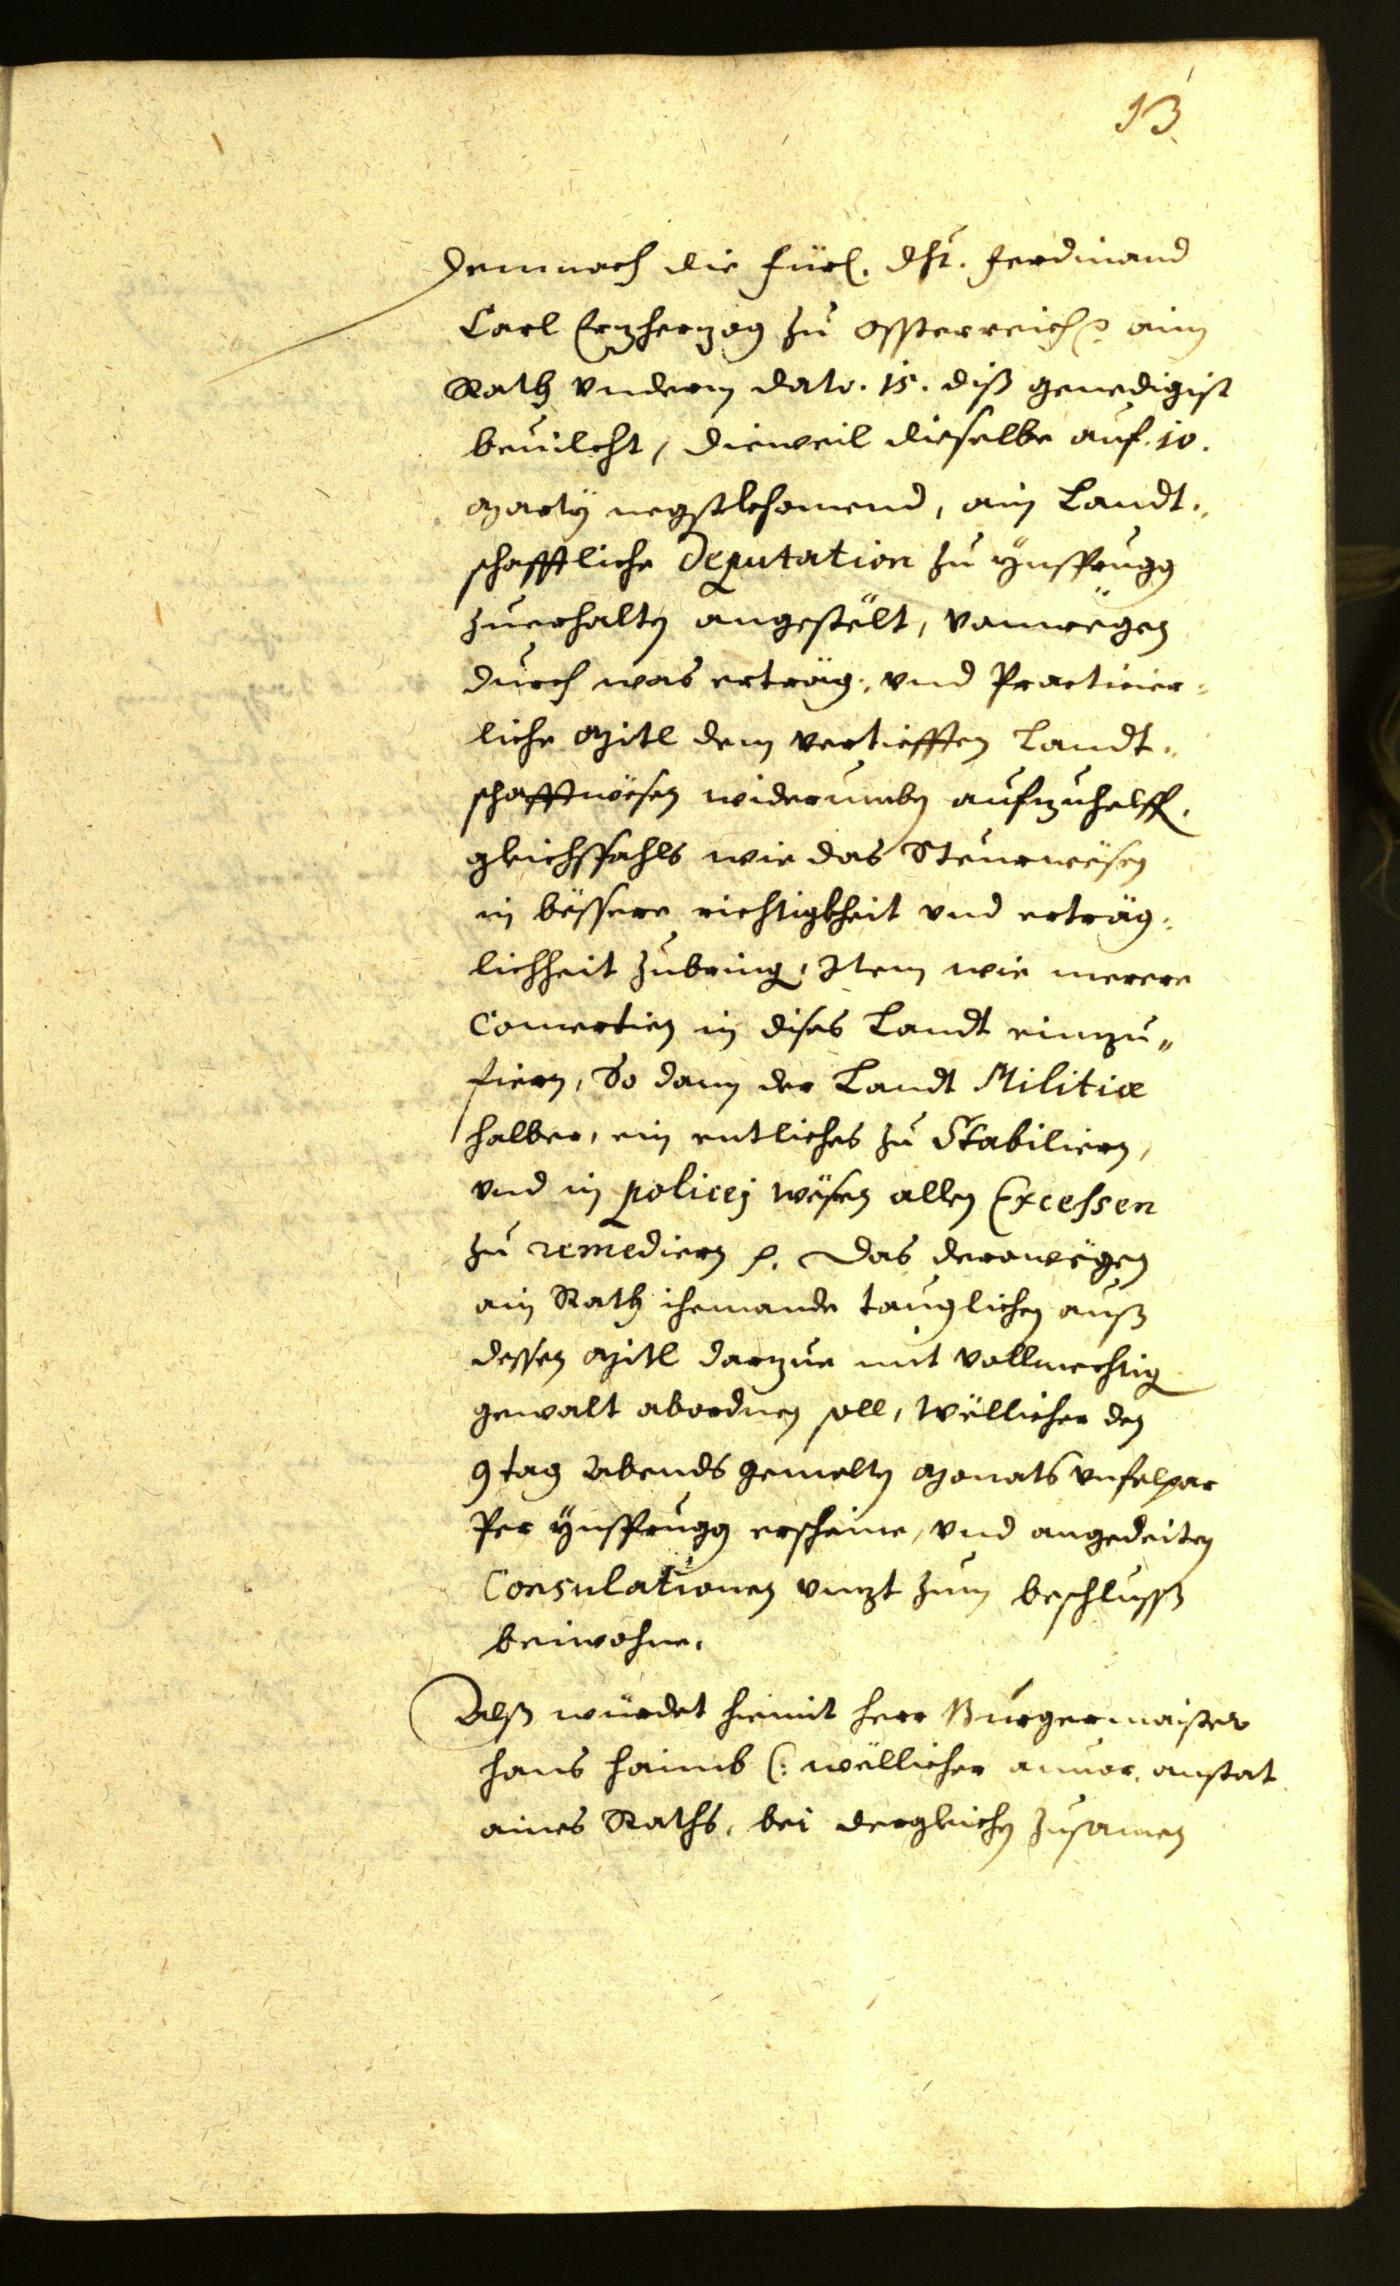 13
Demnach die fürl. Dht. Ferdinand
Carl Erzherzog zu Össterreich aim
Rath vnderm dato. 15. diß genedigist
beuilcht, dieweil dieselbe auf. 10.
Marty negstkhomend, ain Landt-
schafftliche Deputation zu Ynsprugg
zuerhalten angestëlt, vonwëgen
durch was erträg: vnd Practicier-
liche Mitl dem vertiefften Landt-
schafftwësen widerumben aufzuhelff.
gleichsfahls wie das Steurwësen
in bëssere richtigkheit vnd erträg-
lichheit zubring, Item wie merere
Comertien in dises Landt einzu-
fiern, So dann der Landt Militiæ
halber, ein entliches zu Stabiliern,
vnd in policej wësen allen Excessen
zu remediern p. Das derowëgen
ain Rath iemande tauglichen auß
dessen Mitl darzue mit vollmechtig
gewalt abordnen soll, wëllicher den
9 tag Abends gemelten Monats vnfelpar
Per Ynsprugg erscheine, vnd angedeiten
Consulationen vnzt zum beschlusß
beiwohne.
Alß würdet hiemit herr Burgermaister
Hans Haimb (: wëllicher anuor. anstat
aines Raths, bei dergleichen zusamen